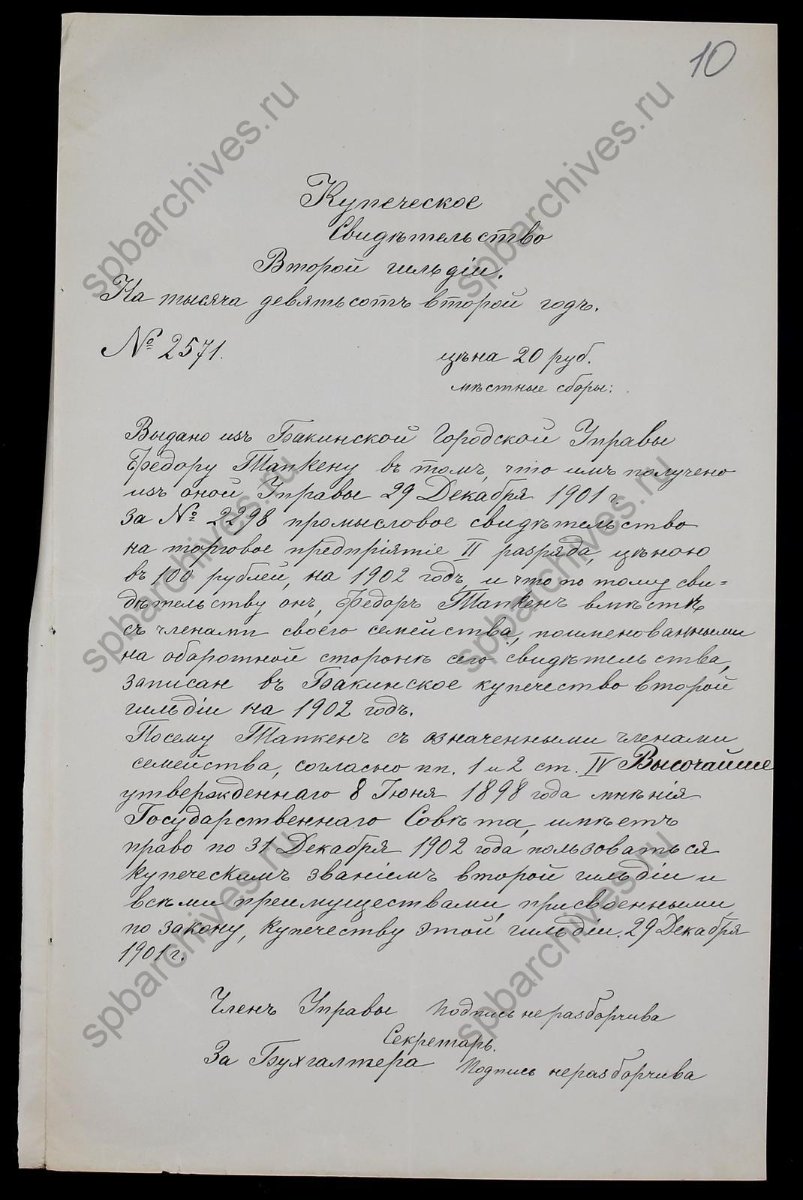 10
Купеческое
Свидѣтельство
Второй гильдіи.
На тысяча девятьсотъ второй годъ.
№ 2571.
цѣна 20 руб.
мѣстные сборы:
Выдано изъ Бакинской Городской Управы
Федору Тапкену въ томъ, что имъ получено
изъ оной Управы 29 Декабря 1901 г.
за № 2298 промысловое свидѣтельство
на торговое предпріятіе II разряда, цѣною
въ 100 рублей, на 1902 годъ, и что по тому сви=
дѣтельству онъ, Федоръ Тапкенъ вмѣстѣ
съ членами своего семейства, поименованными
на оборотной сторонѣ сего свидѣтельства,
записан въ Бакинское купечество второй
гильдіи на 1902 годъ.
Посему Тапкенъ съ означенными членами
семейства, согласно пп. 1 и 2 ст. IV Высочайше
утвержденнаго 8 Іюня 1898 года мнѣнія
Государственнаго Совѣта, имѣетъ
право по 31 Декабря 1902 года пользоваться
купеческимъ званіемъ второй гильдіи и
всѣми преимуществами, присвоенными
по закону, купечеству этой гильдіи. 29 Декабря
1901 г.
Членъ Управы Подпись неразборчива
Секретарь.
За Бухгалтера Подпись неразборчива
spbarchives.ru
spbarchives.ru
spbarchives.ru
spbarchives.ru
spbarchives.ru
spbarchives.ru